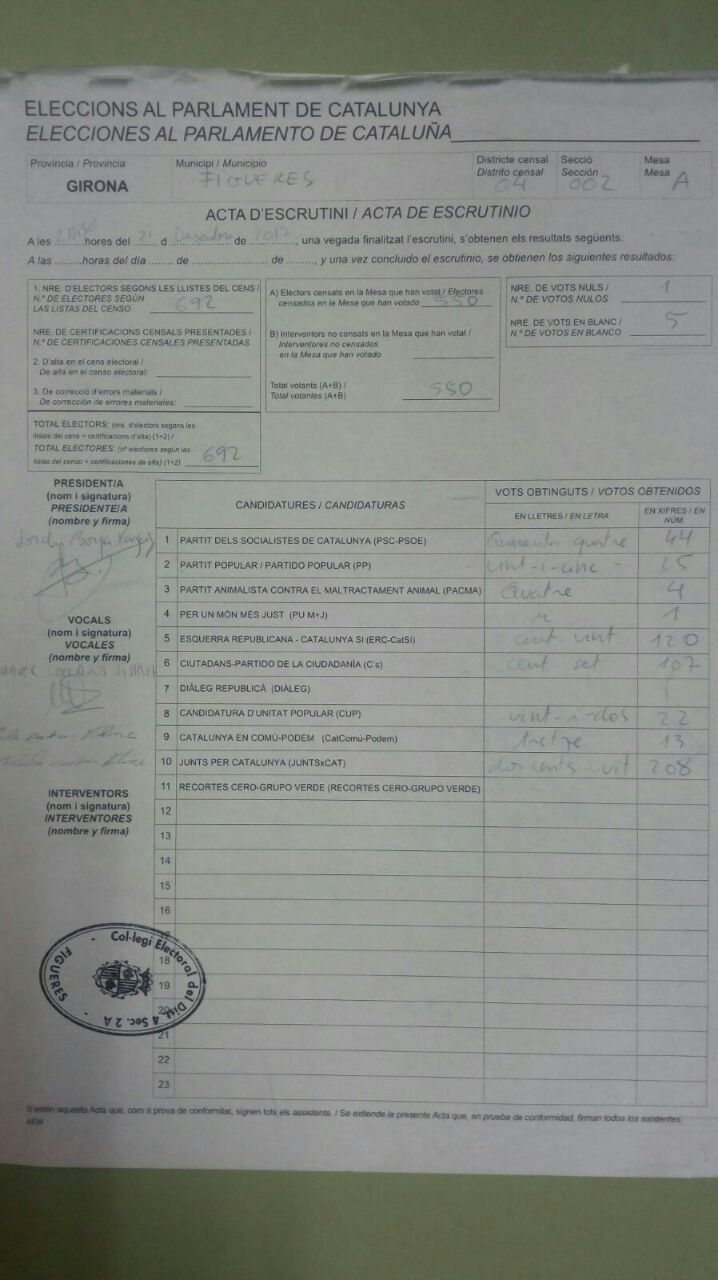 ELECCIONS AL PARLAMENT DE CATALUNYA
ELECCIONES AL PARLAMENTO DE CATALUÑA
Província / Provincia
GIRONA
Municipi / Municipio
FIGUERES
Districte censal
Distrito censal
04
Secció
Sección
002
Mesa
Mesa
A
ACTA D'ESCRUTINI / ACTA DE ESCRUTINIO
A les hores del 21 d Desembre de 2017, una vegada finalitzat l'escrutini, s'obtenen els resultats següents:
A las ........horas del día ....... de ....................... de ........, y una vez concluido el escrutinio, se obtienen los siguientes resultados:
1. NRE. D'ELECTORS SEGONS LES LLISTES DEL CENS /
N.º DE ELECTORES SEGÚN
LAS LISTAS DEL CENSO 692
NRE. DE CERTIFICACIONS CENSALS PRESENTADES /
N.º DE CERTIFICACIONES CENSALES PRESENTADAS
2. D'alta en el cens electoral /
De alta en el censo electoral:
3. De correcció d'errors materials /
De corrección de errores materiales:
TOTAL ELECTORS: (nre. d'electors segons les
llistes del cens + certificacions d'alta) (1+2) /
TOTAL ELECTORES: (nº electores según las
listas del censo + certificaciones de alta) (1+2) 692
A) Electors censats en la Mesa que han votat / Electores
censados en la Mesa que han votado 550
B) Interventors no censats en la Mesa que han votat /
Interventores no censados
en la Mesa que han votado
Total votants (A+B) /
Total votantes (A+B) 550
NRE. DE VOTS NULS /
N.º DE VOTOS NULOS 1
NRE. DE VOTS EN BLANC /
N.º DE VOTOS EN BLANCO 5
PRESIDENT/A
(nom i signatura)
PRESIDENTE/A
(nombre y firma)
VOCALS
(nom i signatura)
VOCALES
(nombre y firma)
INTERVENTORS
(nom i signatura)
INTERVENTORES
(nombre y firma)
CANDIDATURES / CANDIDATURAS
VOTS OBTINGUTS / VOTOS OBTENIDOS
EN LLETRES / EN LETRA
EN XIFRES / EN NÚM.
1 PARTIT DELS SOCIALISTES DE CATALUNYA (PSC-PSOE) Quaranta quatre 44
2 PARTIT POPULAR / PARTIDO POPULAR (PP) vint-i-cinc 25
3 PARTIT ANIMALISTA CONTRA EL MALTRACTAMENT ANIMAL (PACMA) Quatre 4
4 PER UN MÓN MÉS JUST (PU M+J) 1
5 ESQUERRA REPUBLICANA - CATALUNYA SI (ERC-CatSí) cent vint 120
6 CIUTADANS-PARTIDO DE LA CIUDADANÍA (C's) cent set 107
7 DIÀLEG REPUBLICÀ (DIÀLEG)
8 CANDIDATURA D'UNITAT POPULAR (CUP) vint-i-dos 22
9 CATALUNYA EN COMÚ-PODEM (CatComú-Podem) tretze 13
10 JUNTS PER CATALUNYA (JUNTSxCAT) dos cents vuit 208
11 RECORTES CERO-GRUPO VERDE (RECORTES CERO-GRUPO VERDE)
12
13
14
15
16
18
19
20
21
22
23
Col·legi Electoral del Dist. 4 Sec. 2 A - FIGUERES -
S'estén aquesta Acta que, com a prova de conformitat, signen tots els assistents. / Se extiende la presente Acta que, en prueba de conformidad, firman todos los asistentes.
AEM